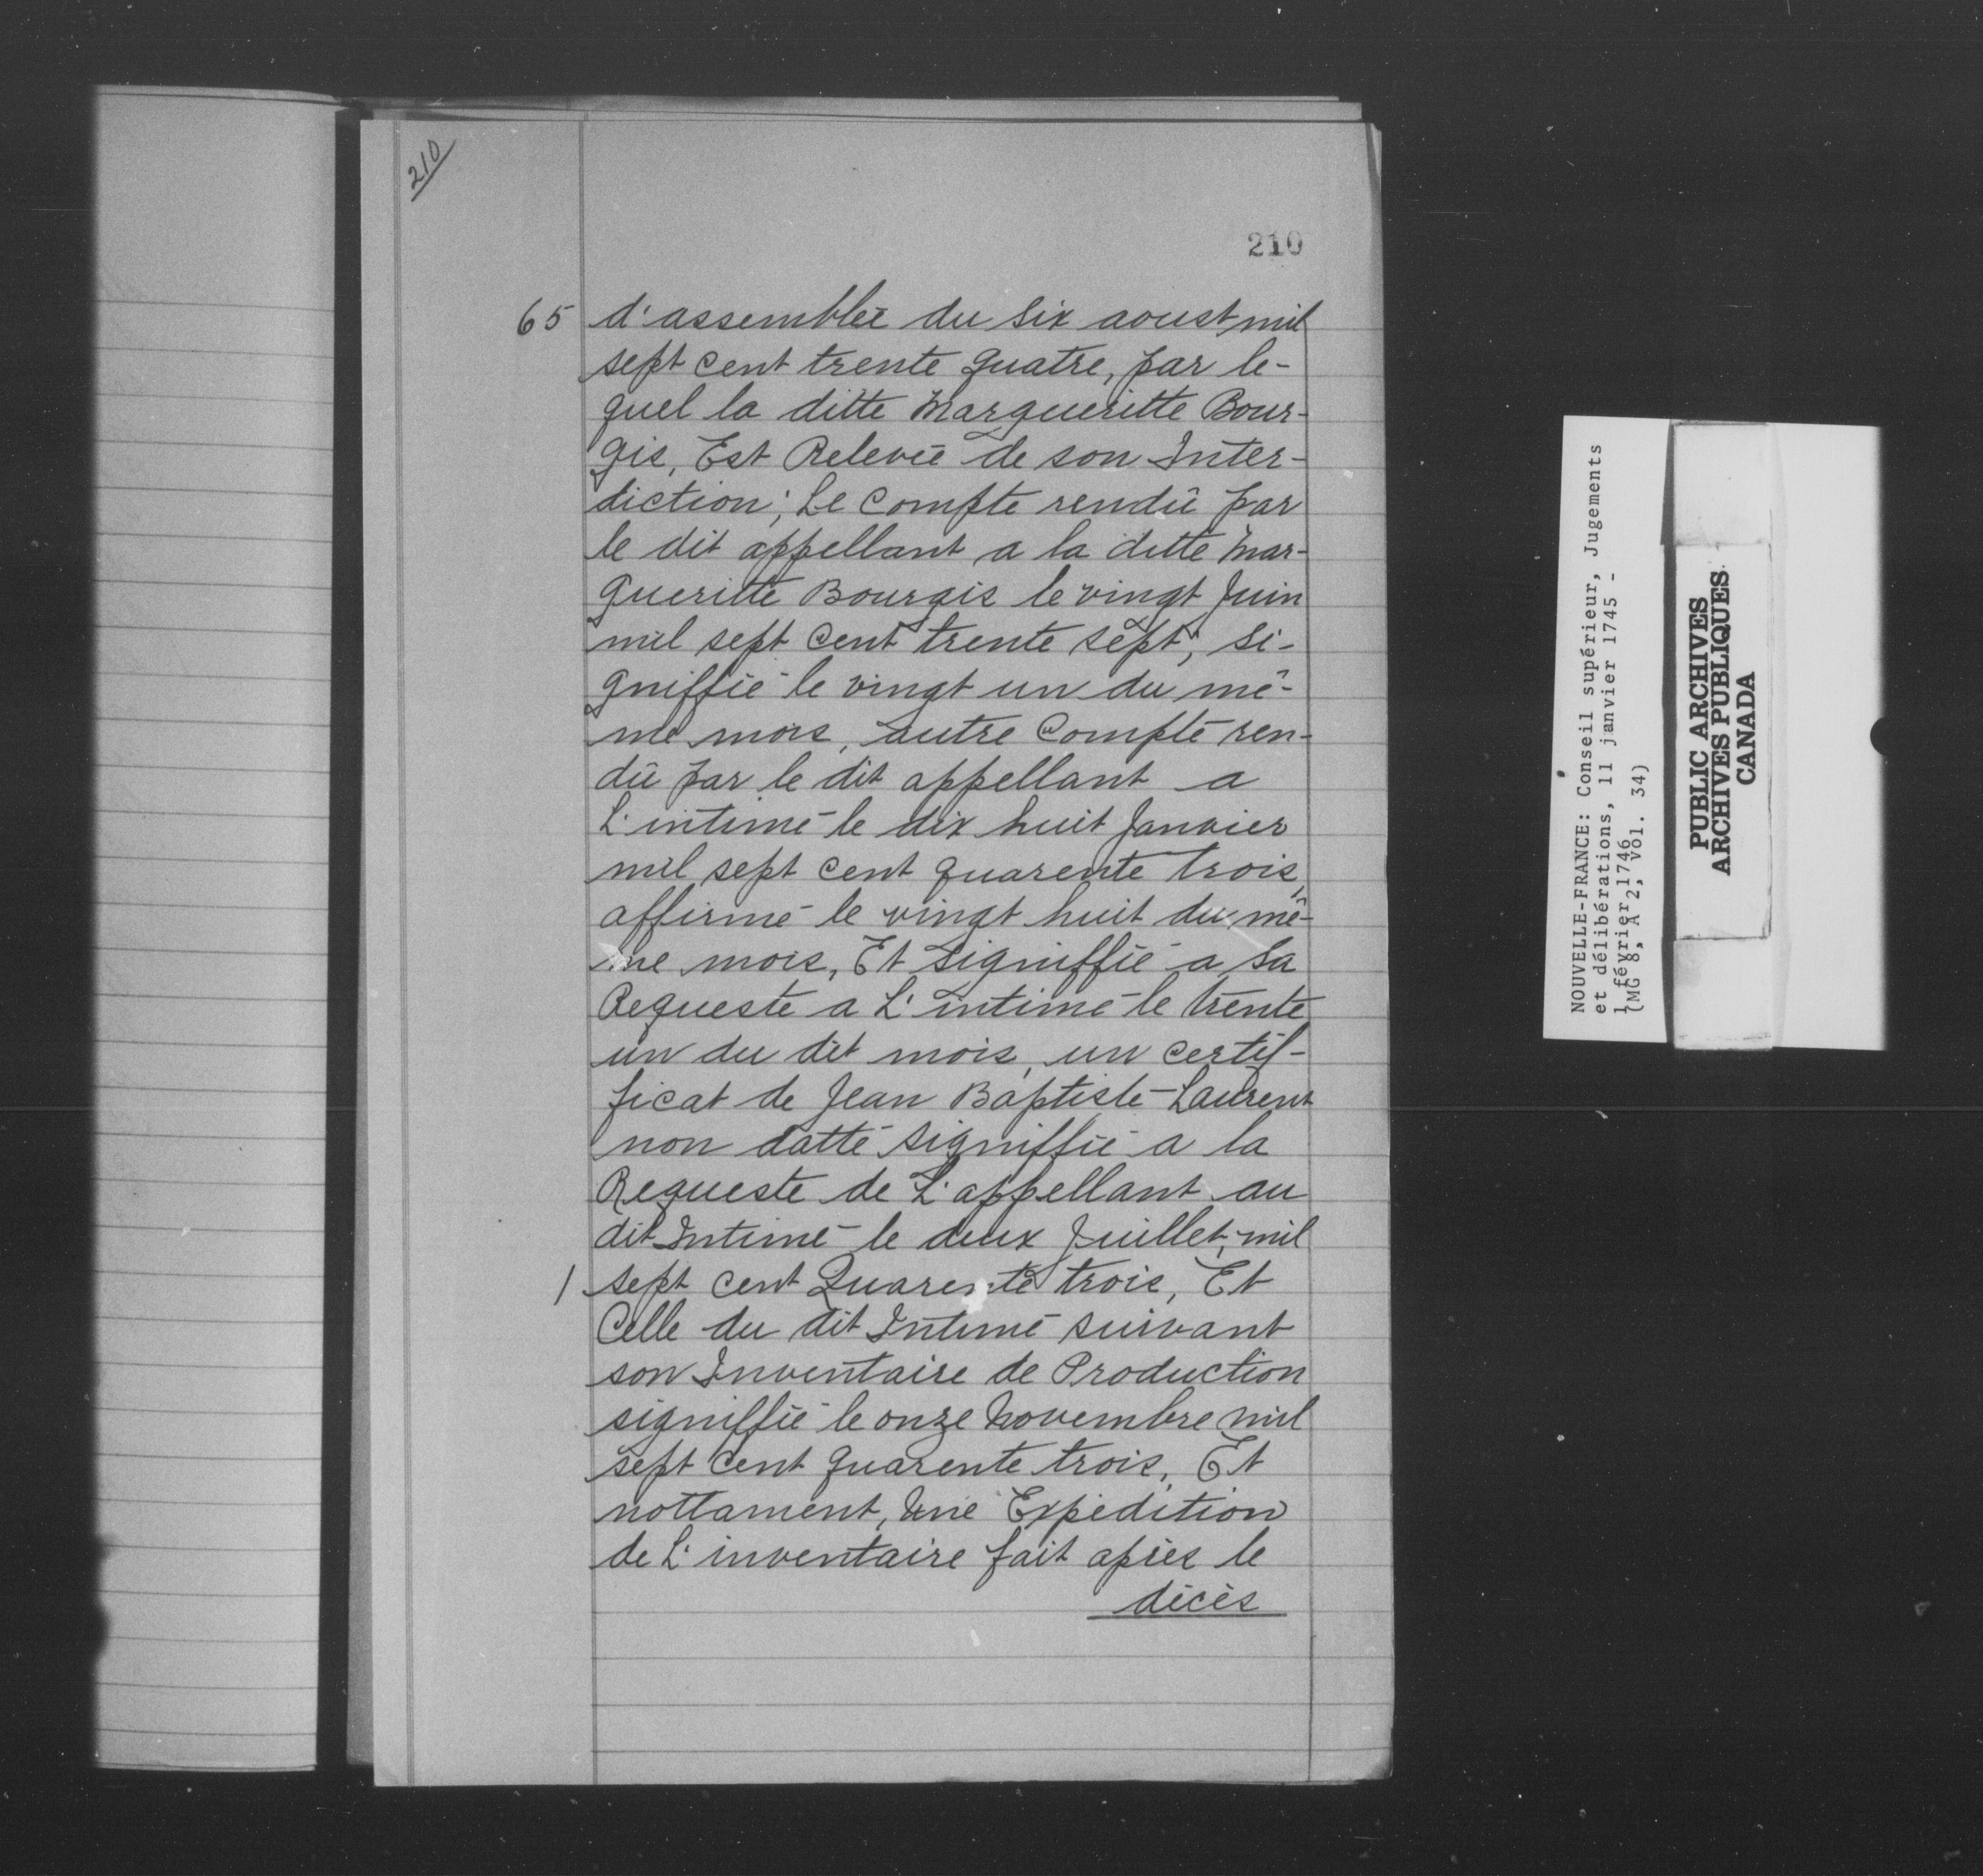 210
210
65 d'assemblée du Six aoust mil
sept cent trente quatre, par le-
quel la ditte Margueritte Bour-
gis, Est Relevée de son Inter-
diction; Le Compte rendû par
le dit appellant a la ditte Mar-
gueritte Bourgis le vingt Juin
mil sept cent trente sept, si-
gniffié le vingt un du mê-
me mois, autre Compte ren-
dû par le dit appellant a
L'intimé le dix huit Janvier
mil sept cent quarente trois,
affirmé le vingt huit du mê-
me mois, Et Signiffié a Sa
Requeste a L'intimé le trente
un du dit mois, un certif-
ficat de Jean Baptiste Laurent
non datté signiffié a la
Requeste de L'appellant au
dit Intimé le deux Juillet, mil
/ sept cent Quarente trois, Et
Celle du dit Intimé suivant
son Inventaire de Production
signiffié le onze Novembre mil
sept Cent quarente trois, Et
nottament, Une Expédition
de L'inventaire fait après le
décès
NOUVELLE-FRANCE: Conseil supérieur, Jugements
et délibérations, 11 janvier 1745 -
1 février 1746
(MG 8, A 2, vol. 34)
PUBLIC ARCHIVES
ARCHIVES PUBLIQUES
CANADA